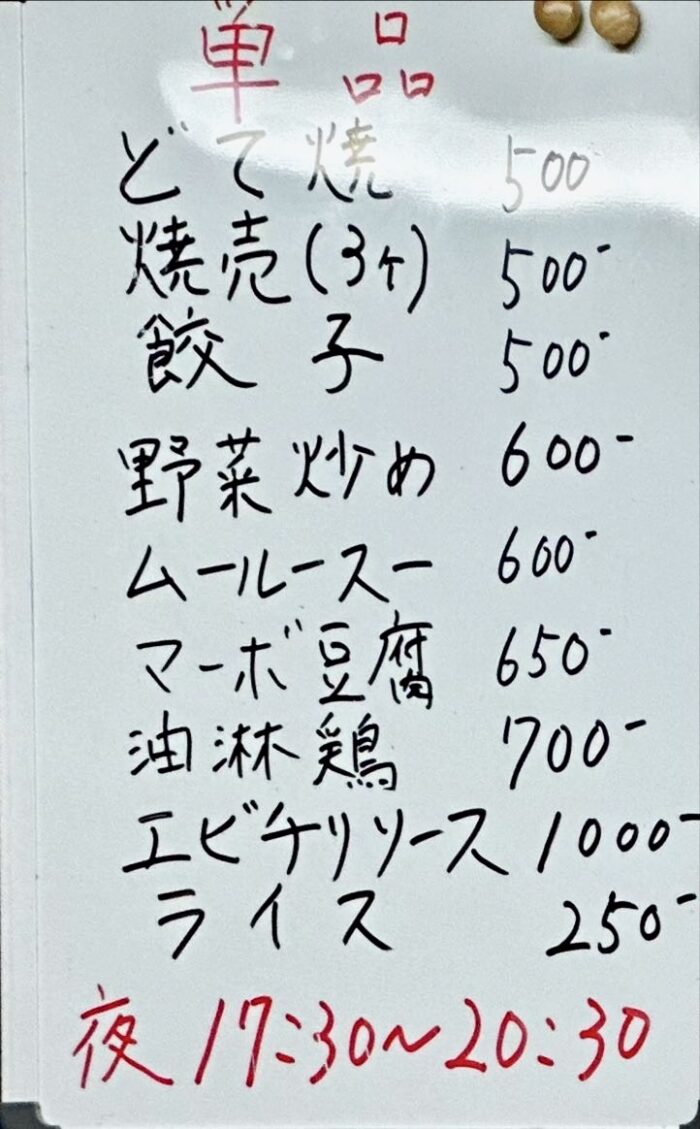 単品
どて焼 500
焼売(3ケ) 500-
餃子 500-
野菜炒め 600-
ムールースー 600-
マーボ豆腐 650-
油淋鶏 700-
エビチリソース 1000-
ライス 250-
夜 17:30~20:30